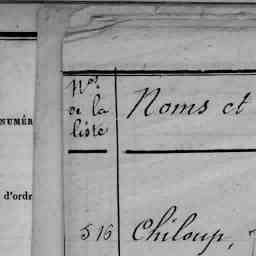 Nos
de la
liste
Noms et
NUMÉR
d'ordr
516
Chiloup,